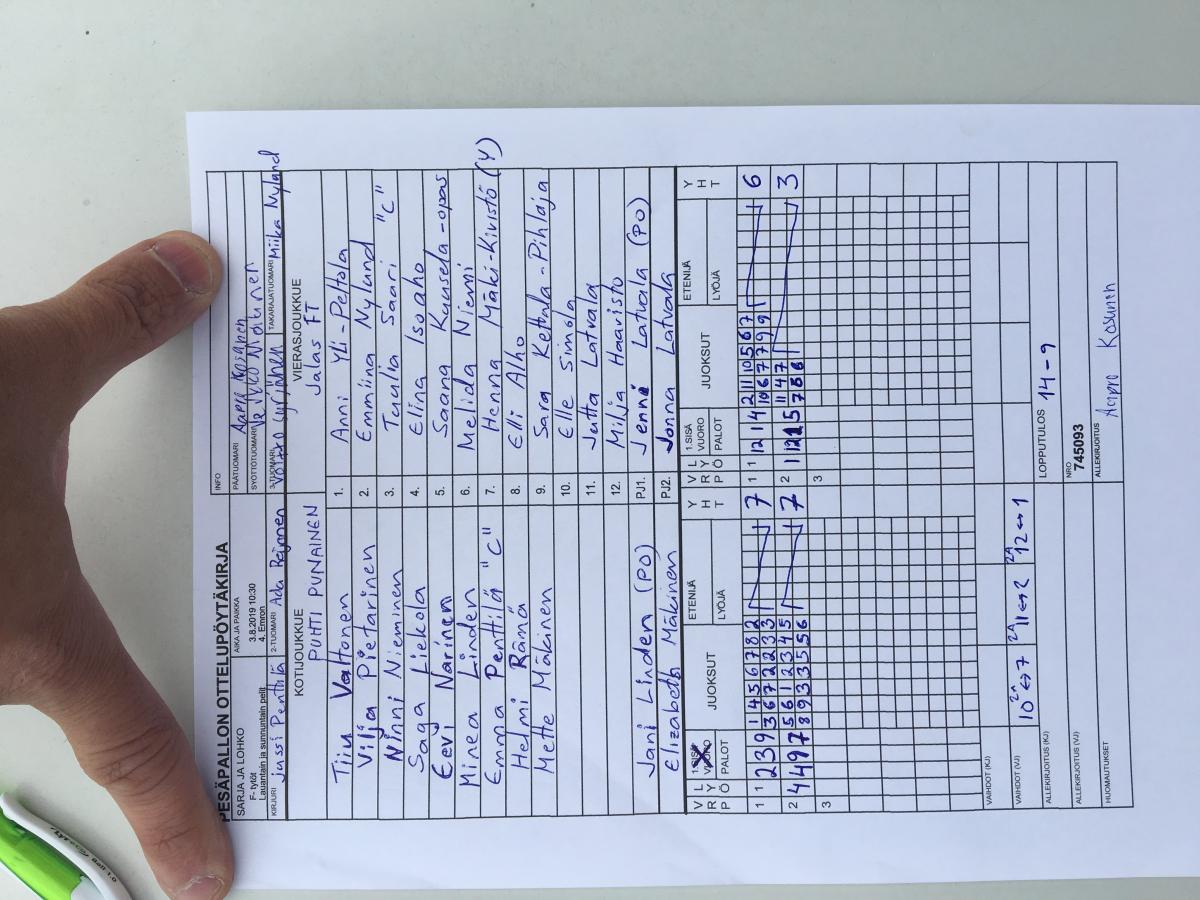 PESÄPALLON OTTELUPÖYTÄKIRJA
INFO
SARJA JA LOHKO
F- tytöt
Lauantain ja sunnuntain pelit
AIKA JA PAIKKA
3.8.2019 10:30
4. Emron
PÄÄTUOMARI
SYÖTTÖTUOMARI
KIRJURI Jussi Penttilä
2-TUOMARI Ada Reijonen
3-TUOMARI
TAKARAJATUOMARI Miika Nyland
KOTIJOUKKUE
PUHTI PUNAINEN
VIERASJOUKKUE
Jalas FT
Tiiu Valtonen 1. Anni Yli-Peltola
Vilja Pietarinen 2. Emmiina Nylund
Ninni Nieminen 3. Tuulia Saari "C"
Saga Liekola 4. Elina Isoaho
Eevi Närinen 5. Saana Kuusela -opas
Minea Linden 6. Melida Niemi
Emma Penttilä "C" 7. Henna Mäki-Kivistö (Y)
Helmi Rämä 8. Elli Alho
Mette Mäkinen 9. Sara Kettula-Pihlaja
10. Elle Simola
11. Jutta Latvala
12. Milja Haaristo
Jani Linden (PO) PJ1. Jenni Latvala (PO)
Elizabeth Mäkinen PJ2. Jonna Latvala
V R P L Y Ö 1.SISÄ VUORO PALOT JUOKSUT ETENIJÄ LYÖJÄ Y H T
V R P L Y Ö 1.SISÄ VUORO PALOT JUOKSUT ETENIJÄ LYÖJÄ Y H T
1 1 2 3 9 1 4 5 6 7 8 2 7 1 1 12 1 4 2 11 10 5 6 7 6
3 6 7 2 2 3 3 10 6 7 7 9 9
2 4 4 9 7 5 6 1 2 3 4 5 7 2 11 4 7 3
8 9 3 3 5 5 6 7 8 8
3 3
VAIHDOT (KJ)
VAIHDOT (VJ) 10 2A ↔ 7 2A 11 ↔ 2 2A 12 ↔ 1
ALLEKIRJOITUS (KJ)
LOPPUTULOS 14 - 9
ALLEKIRJOITUS (VJ)
NRO
745093
HUOMAUTUKSET
ALLEKIRJOITUS
Aapro Kosunen